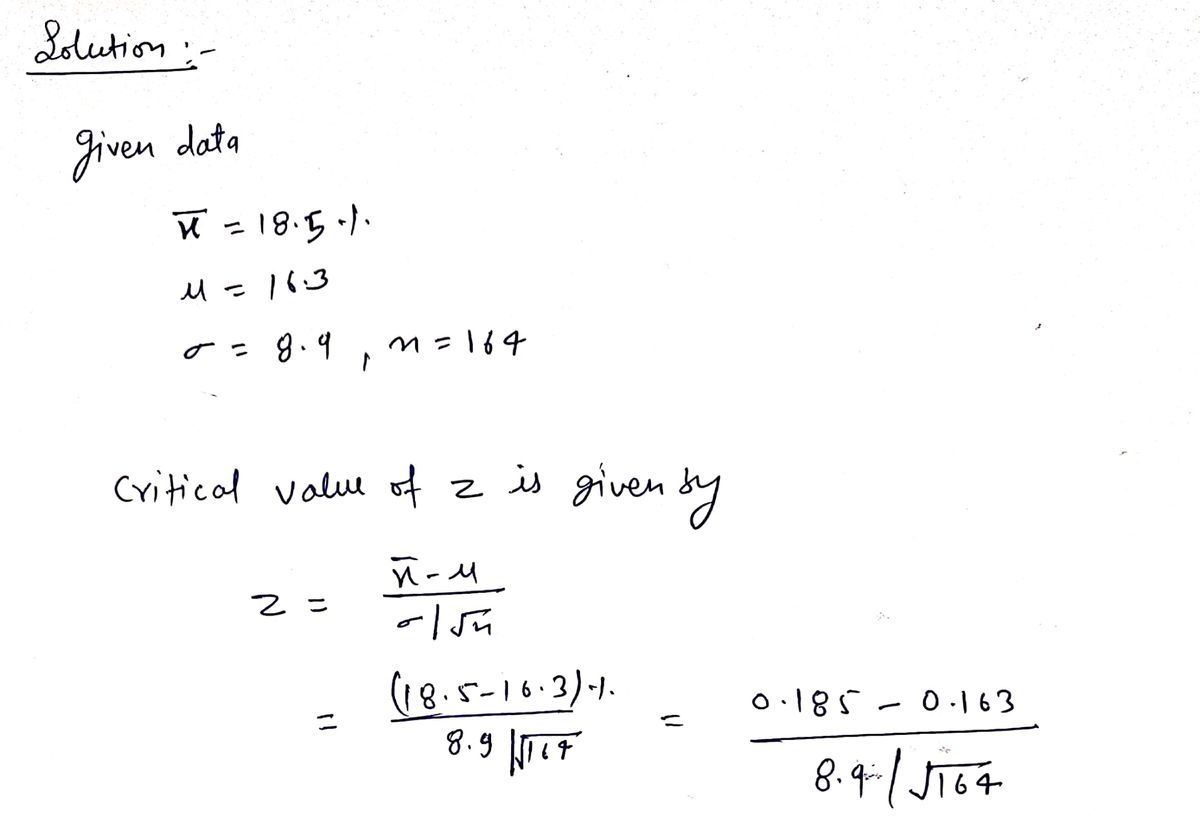 Solution :-
given data
x̄ = 18.5 %
μ = 16.3
σ = 8.9 , n = 164
Critical value of z is given by
z = (x̄ - μ) / (σ/√n)
= (18.5-16.3)% / (8.9/√164) = (0.185 - 0.163) / (8.9/√164)